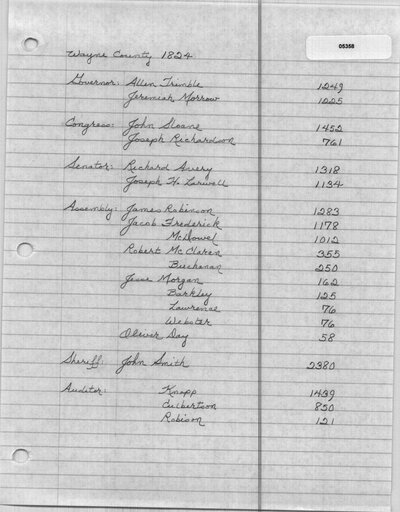 05358
Wayne County 1824
Governor: Allen Trimble 1249
Jeremiah Morrow 1225
Congress: John Sloane 1452
Joseph Richardson 761
Senator: Richard Avery 1318
Joseph H. Larwell 1134
Assembly: James Robinson 1283
Jacob Frederick 1178
McDowel 1012
Robert McClaren 355
Buchanan 250
Jesse Morgan 162
Barkley 125
Lawrence 76
Webster 76
Oliver Day 58
Sheriff: John Smith 2380
Auditor: Knapp 1439
Culbertson 850
Robison 121